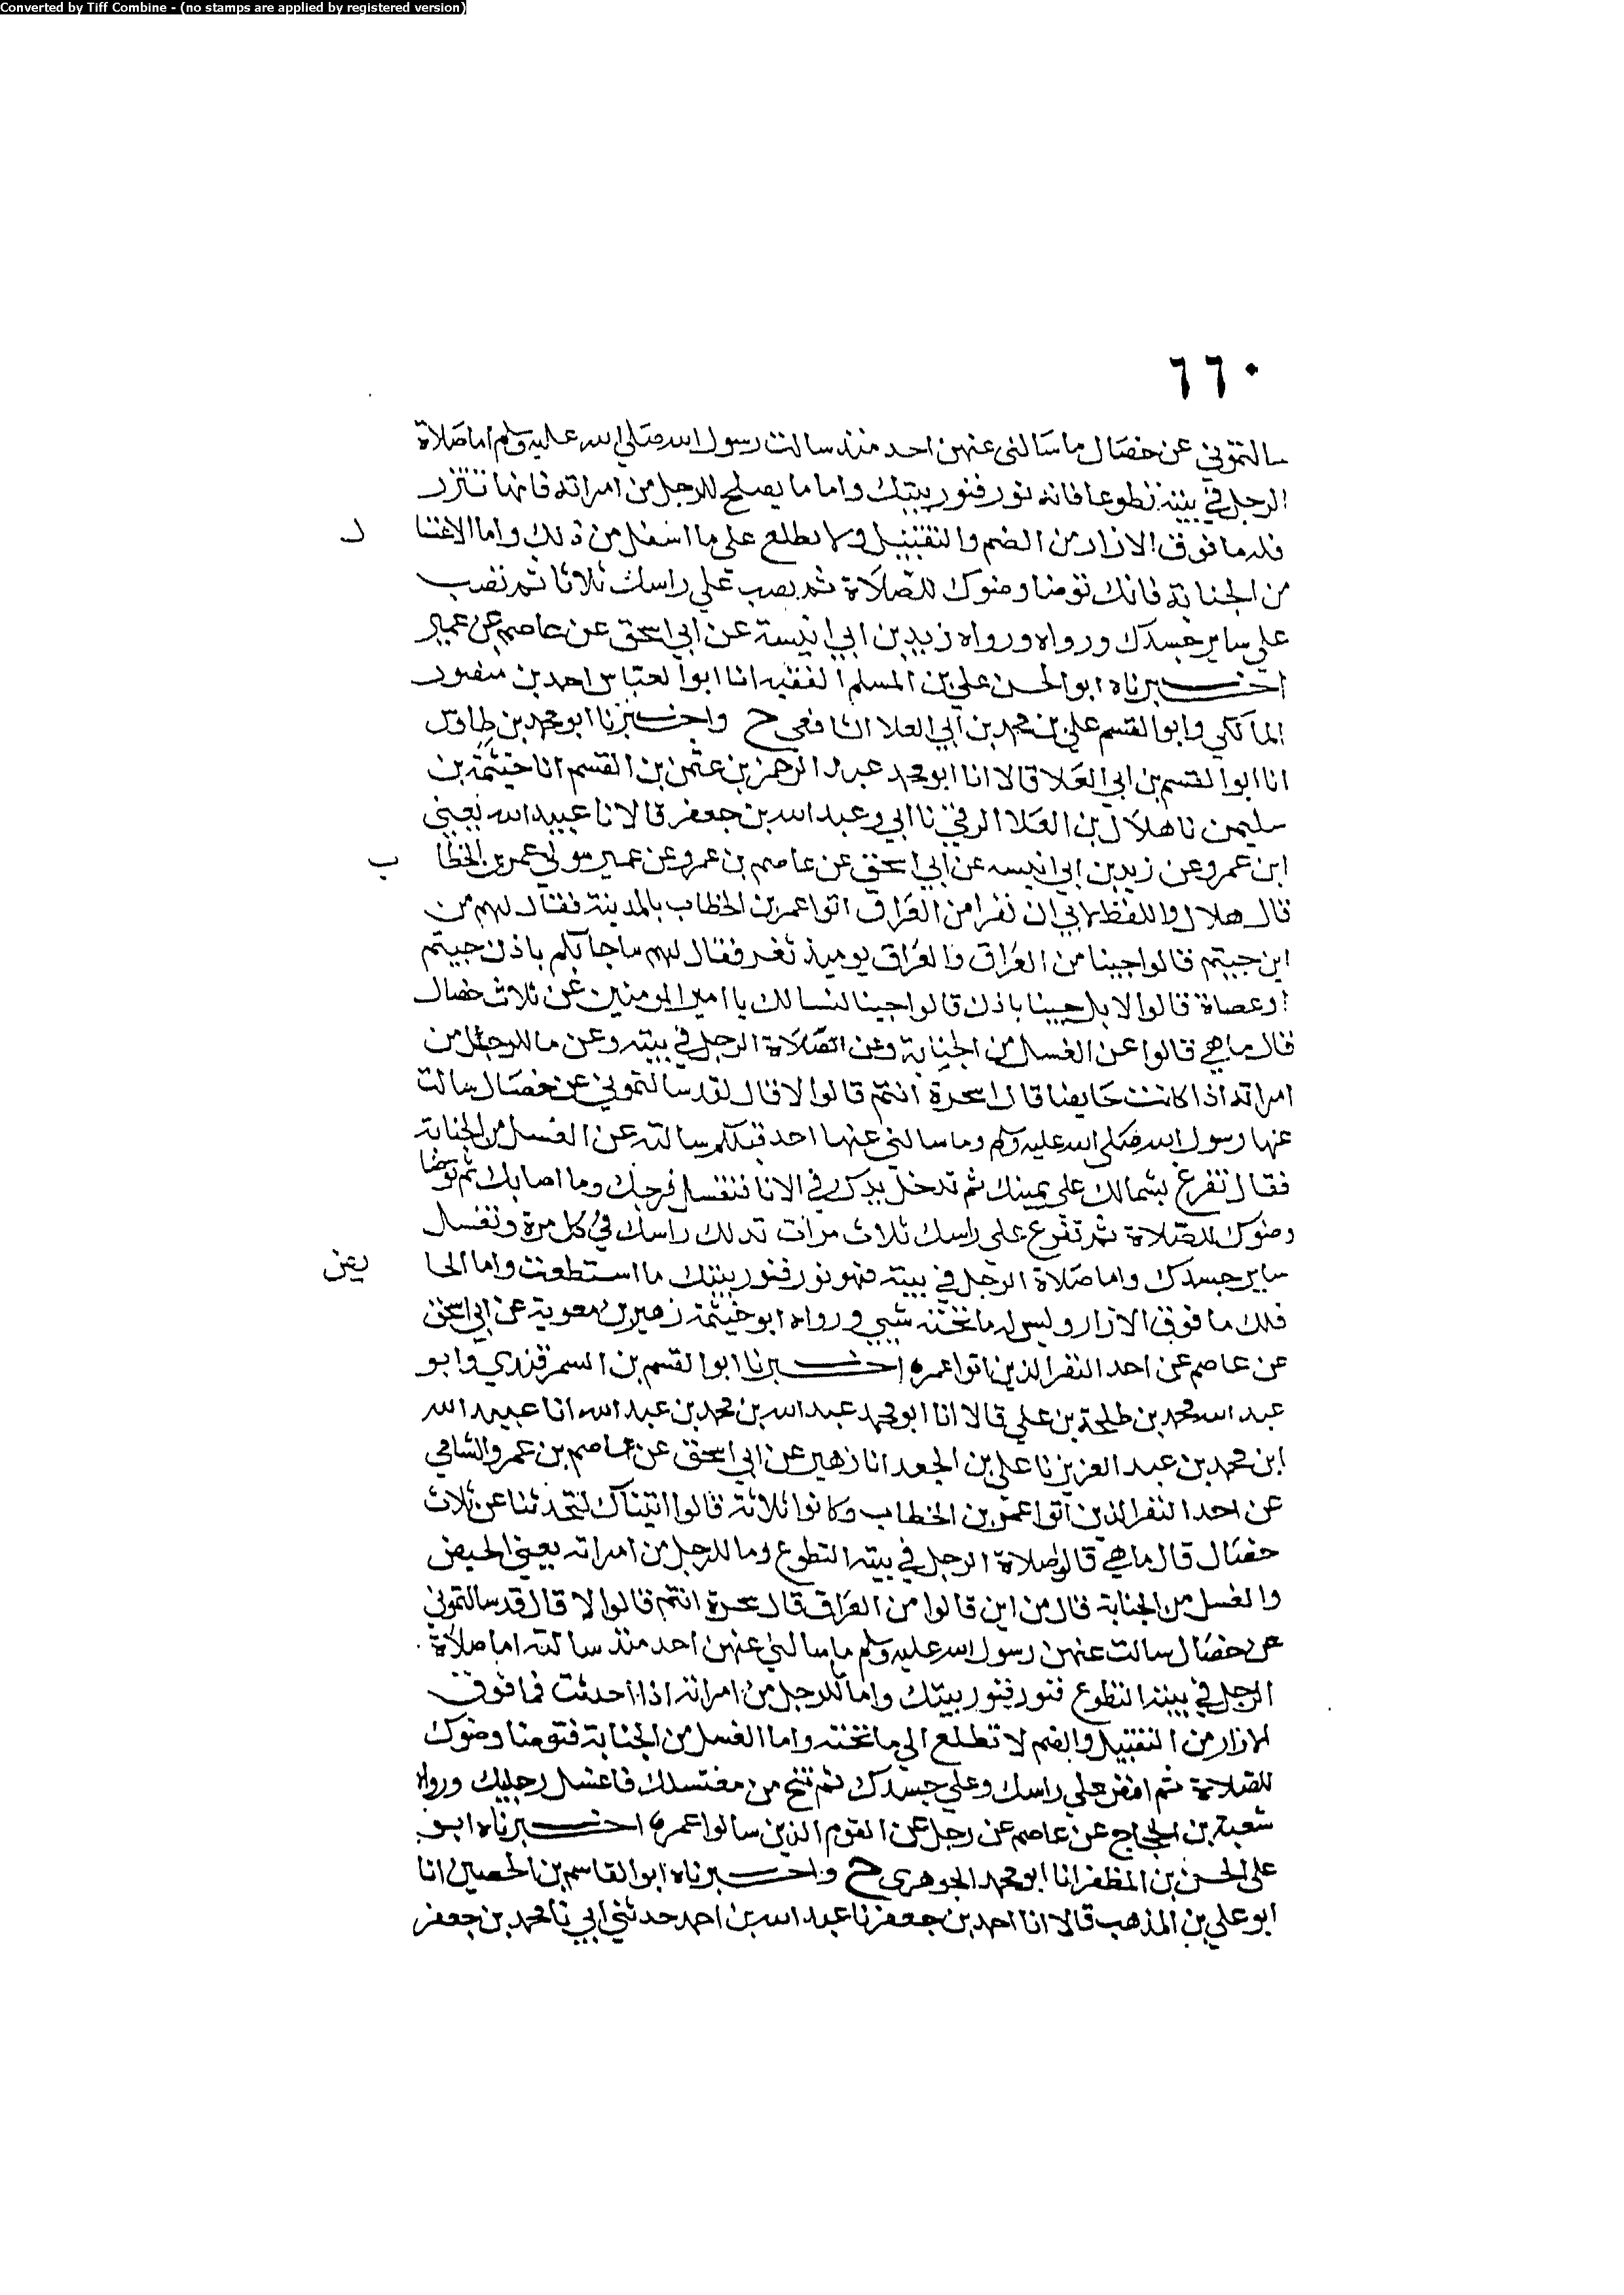 Converted by Tiff Combine - (no stamps are applied by registered version)
٦٦٠
سالتموني عن خصال ما سالنى عنهن احد منذ سالت رسول الله صلي الله عليه وسلم اما صلاة
الرجل في بيته تطوعا فانه نور فنور بيتك واما ما يصلح للرجل من امراته فانها تتزر
فله ما فوق الازار من الضم والتقبيل ولا يطلع على ما اسفل من ذلك واما الاغتسا ل
من الجنابة فانك توضا وضوك للصلاة ثم يصب على راسك ثلاثا ثم تصب
على ساير جسدك ورواه ورواه زيد بن ابي انيسة عن ابي اسحق عن عاصم عن عمير
اخبرناه ابو الحسن علي بن المسلم الفقيه انا ابو العباس احمد بن منصور
المالكي وابو القسم علي بن محمد بن ابي العلا الشافعي ح واخبرنا ابو محمد بن طاوس
انا ابو القسم بن ابي العلا قالا انا ابو محمد عبد الرحمن بن عثمن بن القسم انا خيثمة بن
سليمن نا هلال بن العلا الرقي نا ابي وعبد الله بن جعفر قالا نا عبيد الله يعني
ابن عمرو عن زيد بن ابي انيسه عن ابي اسحق عن عاصم بن عمرو عن عمير مولي عمر بن الخطا ب
قال هلال واللفظ لابي ان نفرا من العراق اتوا عمر بن الخطاب بالمدينة فقال لهم من
اين جيتم قالوا جينا من العراق والعراق يوميذ ثغر فقال لهم ما جا بكم باذن جيتم
او عصاة قالوا لا بل جينا باذن قالوا جينا لنسالك يا امير المومنين عن ثلاث خصال
قال ما هي قالوا عن الغسل من الجنابة وعن الصلاة الرجل في بيته وعن ما للرجل من
امراته اذا كانت حايضا قال اسحرة انتم قالوا لا قال لقد سالتموني عن خصال سالت
عنها رسول الله صلي الله عليه وسلم وما سالني عنها احد قبلكم سالته عن الغسل من الجنابة
فقال تفرغ بشمالك على يمينك ثم تدخل يدك في الانا فتغسل فرجك وما اصابك ثم توضا
وضوك للصلاة ثم تفرغ على راسك ثلاث مرات تدلك راسك في كل مرة وتغسل
ساير جسدك واما صلاة الرجل في بيته فهو نور فنور بيتك ما استطعت واما الحا يض
فلك ما فوق الازار وليس له ما تحته شيي ورواه ابو خيثمة زهير بن معوية عن ابي اسحق
عن عاصم عن احد النفر الذين اتوا عمر ه اخبرنا ابو القسم بن السمرقندي وابو
عبد الله محمد بن طلحة بن علي قالا انا ابو محمد عبد الله بن محمد بن عبد الله انا عبيد الله
ابن محمد بن عبد العزيز نا علي بن الجعد انا زهير عن ابي اسحق عن عاصم بن عمرو الشامي
عن احد النفر الذين اتوا عمر بن الخطاب وكانوا ثلاثة قالوا اتيناك لتحدثنا عن ثلاث
خصال قال ما هي قالوا صلاة الرجل في بيته التطوع وما للرجل من امراته يعني الحيض
والغسل من الجنابة قال من اين قالوا من العراق قال سحرة انتم قالوا لا قال قد سالتموني
عن خصال سالت عنهن رسول الله عليه وسلم ما سالني عنهن احد منذ سالته اما صلاة
الرجل في بيته التطوع فنور فنور بيتك واما للرجل من امراته اذا احدثت فما فوق
الازار من التقبيل والضم لا تطلع الي ما تحته واما الغسل من الجنابة فتوضا وضوك
للصلاة ثم افض علي راسك وعلي جسدك ثم تنح من مغتسلك فاغسل رجليك ورواه
شعبة بن الحجاج عن عاصم عن رجل عن القوم الذين سالوا عمر ه اخبرناه ابو
على الحسن بن المظفر انا ابو محمد الجوهرى ح واخبرناه ابو القاسم بن الحصين انا
ابو علي بن المذهب قالا انا احمد بن جعفر نا عبد الله بن احمد حدثني ابي نا محمد بن جعفر